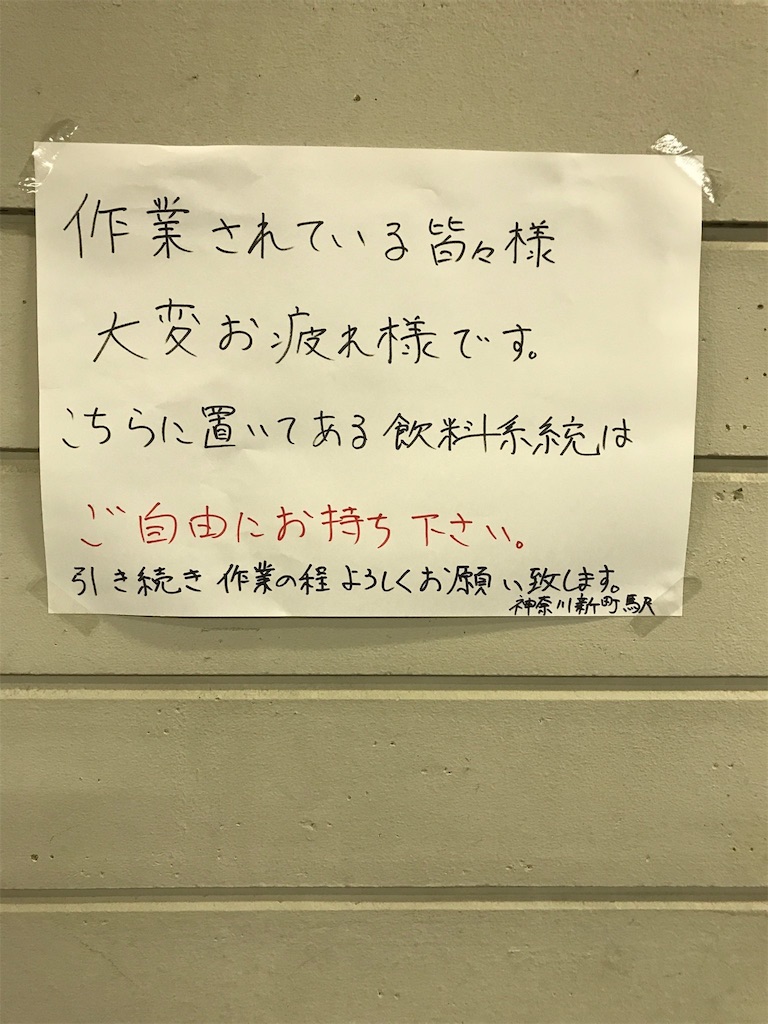 作業されている皆々様
大変お疲れ様です。
こちらに置いてある飲料系統は
ご自由にお持ち下さい。
引き続き作業の程よろしくお願い致します。
神奈川新町駅